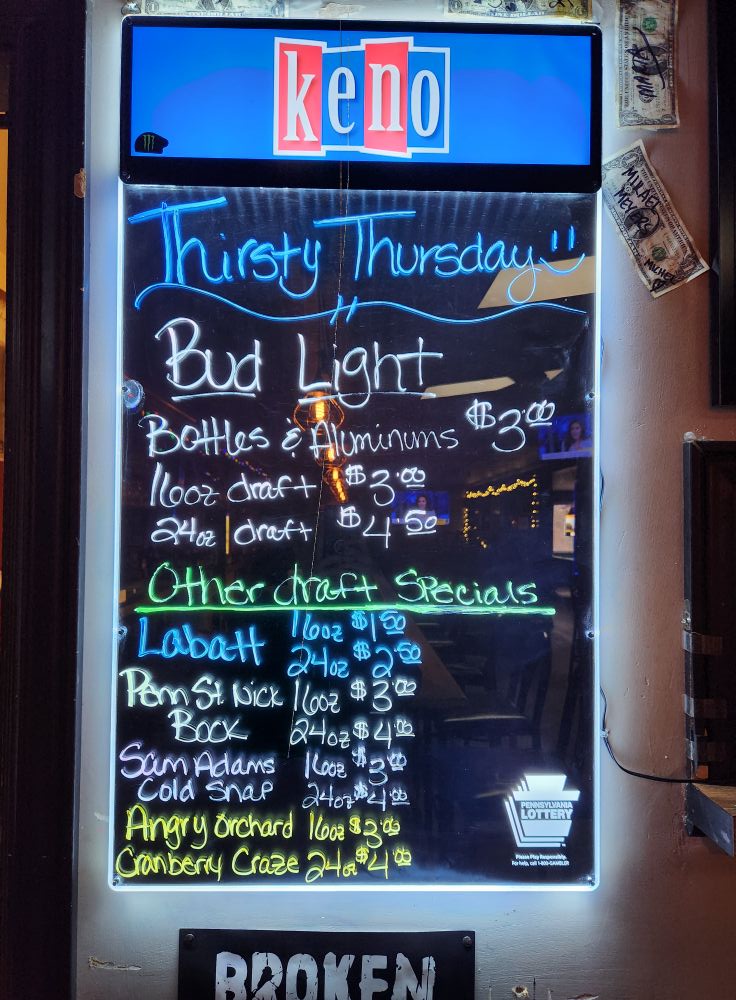 keno
Thirsty Thursday
Bud Light
Bottles & Aluminums $3.00
16oz draft $3.00
24oz draft $4.50
Other draft Specials
Labatt 16oz $1.50
24oz $2.50
Penn St. Nick 16oz $3.00
Bock 24oz $4.00
Sam Adams 16oz $3.00
Cold Snap 24oz $4.00
Angry Orchard 16oz $3.00
Cranberry Craze 24oz $4.00
PENNSYLVANIA
LOTTERY
Please Play Responsibly.
For help, call 1-800-GAMBLER
MIKAEL
MEYERS
BROKEN